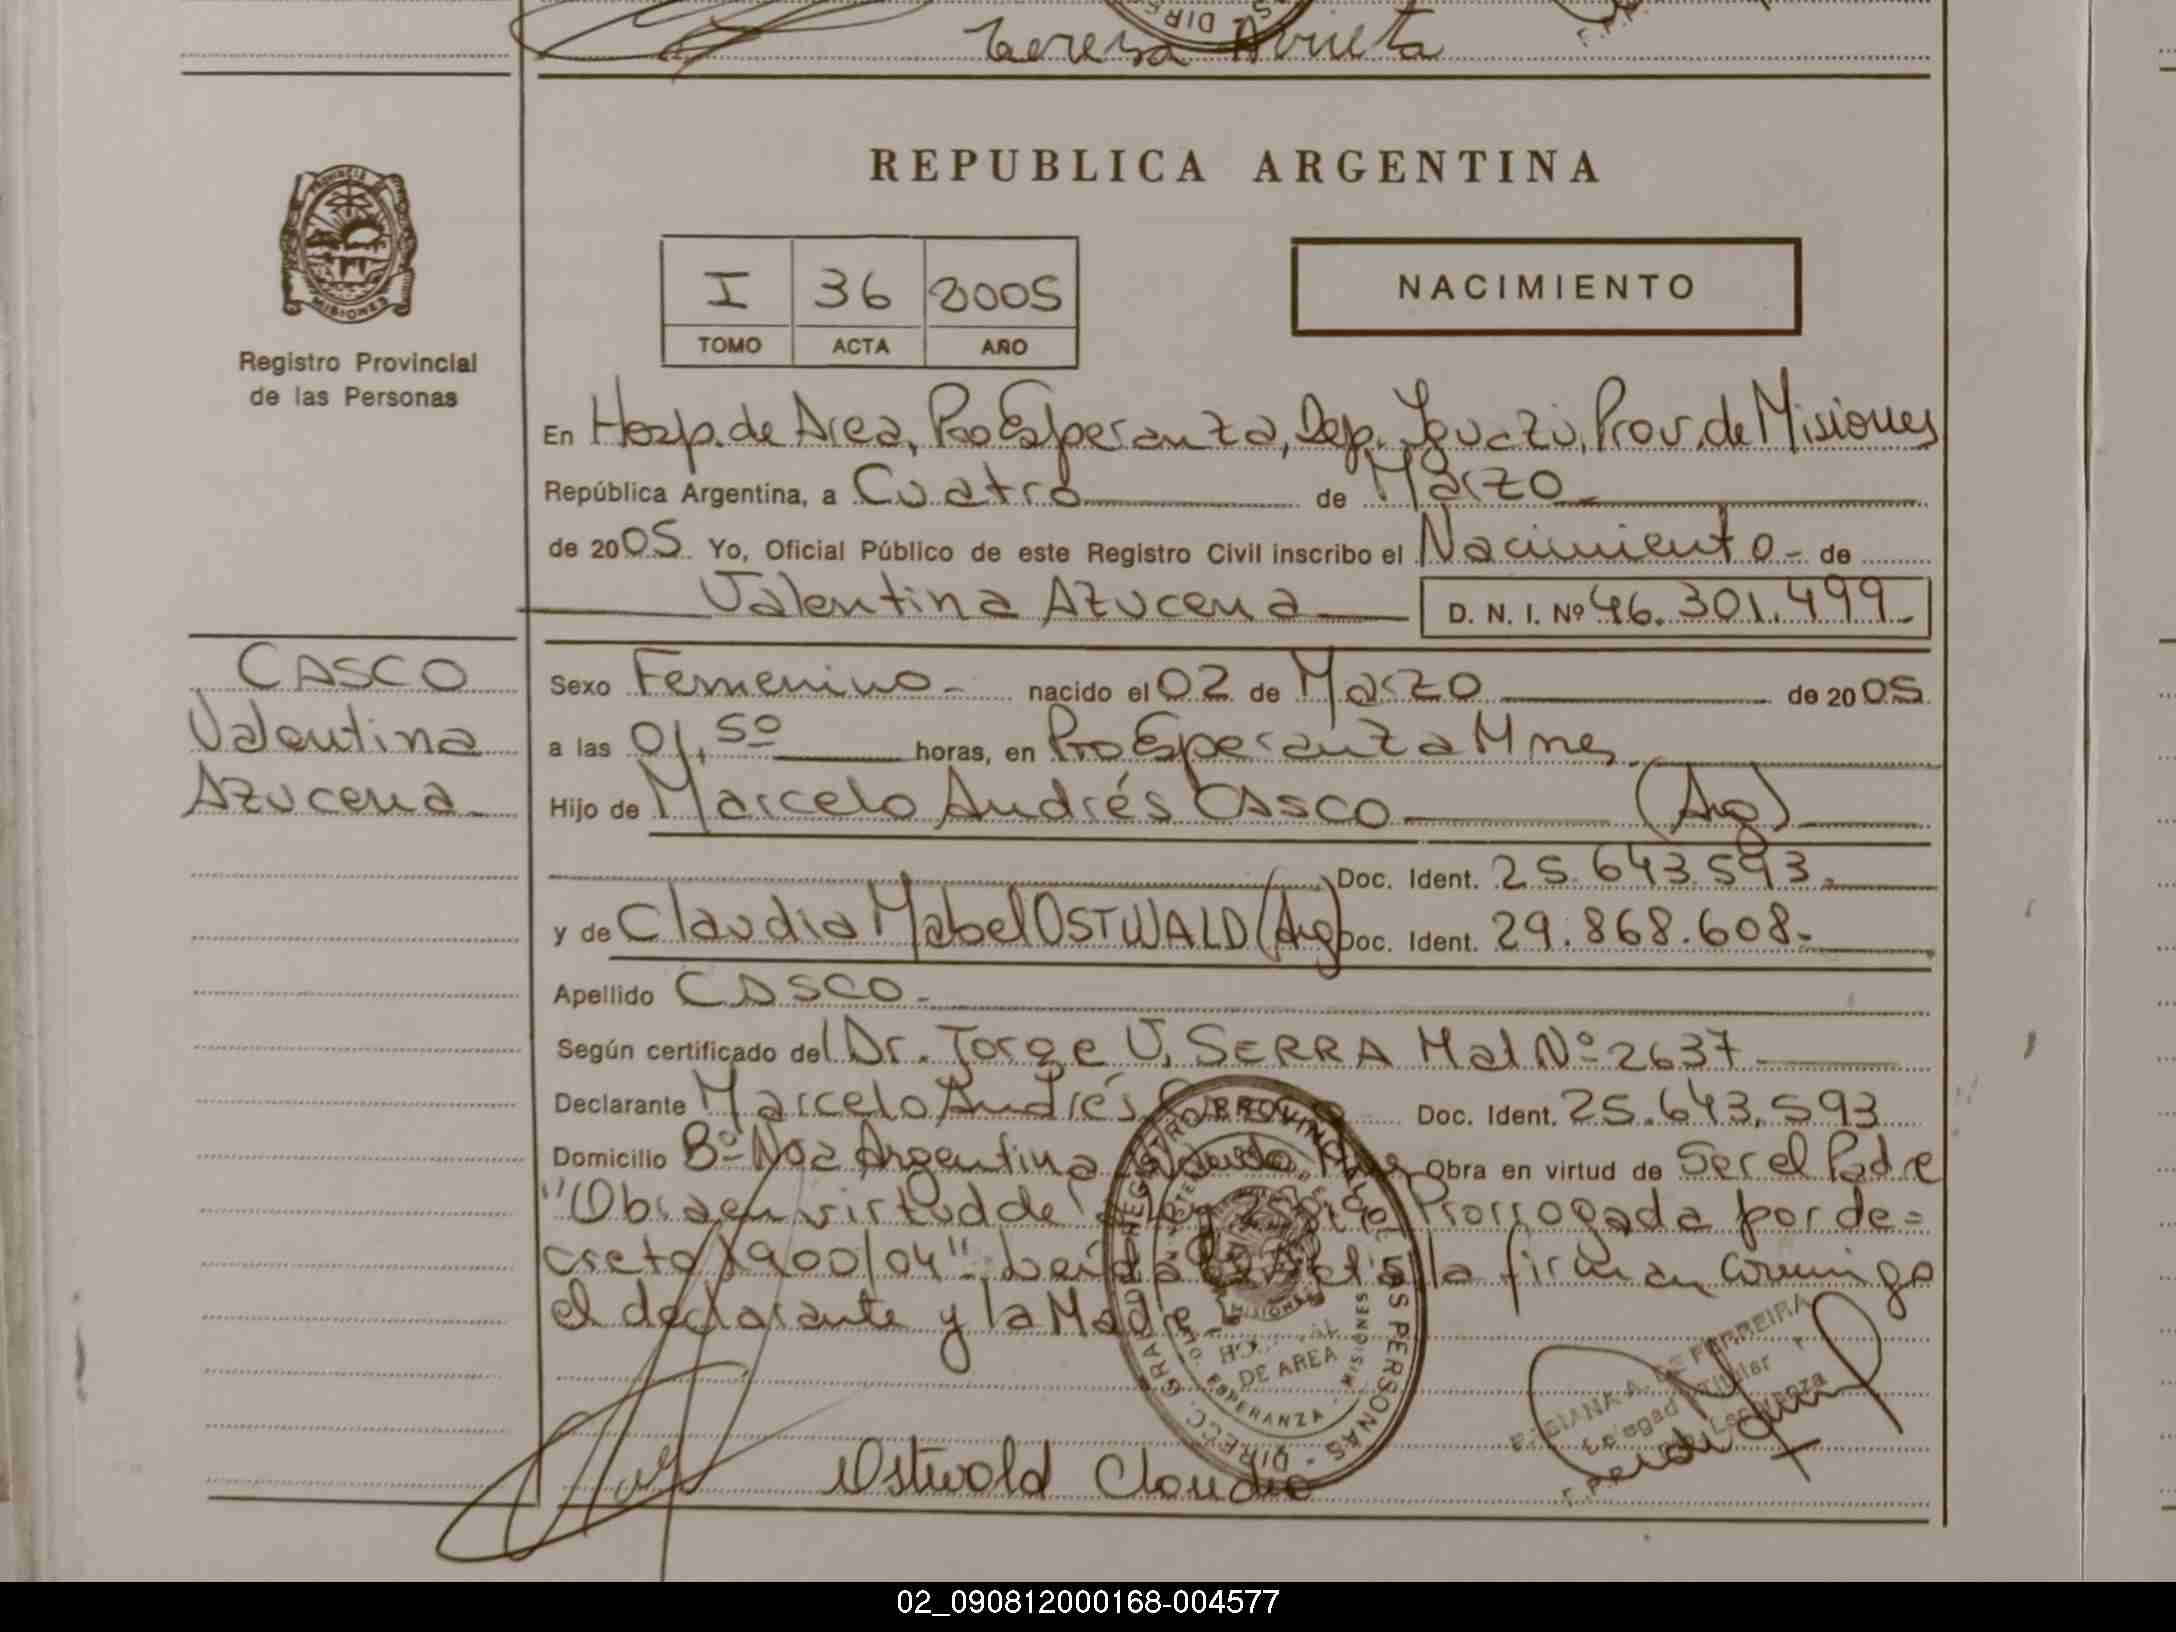 Teresa Arrieta
REPUBLICA ARGENTINA
PROVINCIA DE
MISIONES
Registro Provincial
de las Personas
I 36 2005
TOMO ACTA AÑO
NACIMIENTO
En Hosp. de Area, Pto Esperanza, Dep. Iguazú, Prov. de Misiones
República Argentina, a Cuatro de Marzo
de 2005 Yo, Oficial Público de este Registro Civil inscribo el Nacimiento de
Valentina Azucena D. N. I. Nº 46.301.499
CASCO
Valentina
Azucena
Sexo Femenino nacido el 02 de Marzo de 2005
a las 01,50 horas, en Pto Esperanza Mnes
Hijo de Marcelo Andrés CASCO (Arg)
Doc. Ident. 25.643.593
y de Claudia Mabel OSTWALD (Arg) Doc. Ident. 29.868.608
Apellido CASCO
Según certificado del Dr. Jorge V. SERRA Mal Nº 2637
Declarante Marcelo Andrés Doc. Ident. 25.643.593
Domicilio Bº Nva Argentina Obra en virtud de Ser el Padre
"Obra en virtud de Prorrogada por de=
creto 1900/04" Leída la firman conmigo
el declarante y la Madre
REGISTRO PROVINCIAL DE LAS PERSONAS
HOSPITAL
DE AREA
ESPERANZA - MISIONES
DE FERREIRA
Titular
Ostwald Claudia
02_090812000168-004577